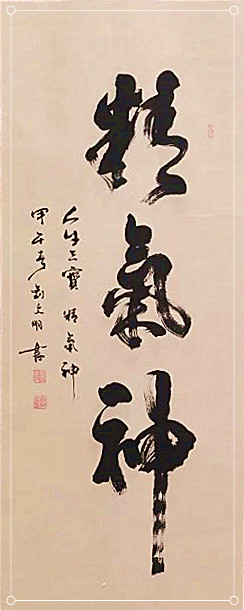 精氣神
人生三寶 精氣神
甲午春 明書